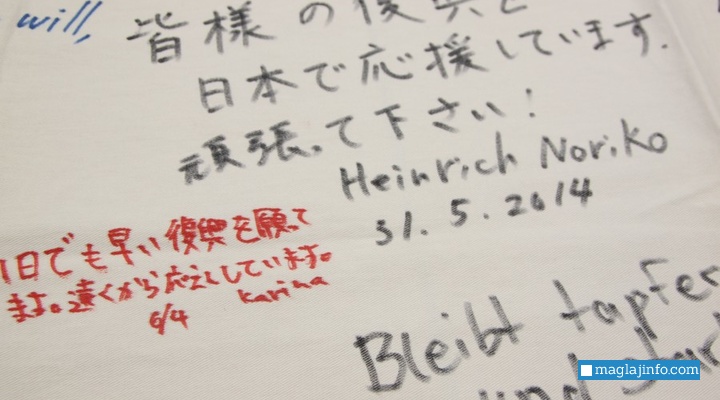 will,
皆様の復興と
日本で応援しています.
頑張って下さい!
Heinrich Noriko
31.5.2014
1日でも早い復興を願って
ます。遠くから応えんしています。
6/4 Karina
Bleibt tapfer
und
maglajinfo.com